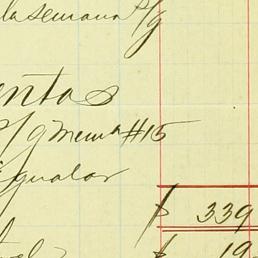 la semana P/g
entas
P/g Mema #15
Igualar
$ 339
$ 19